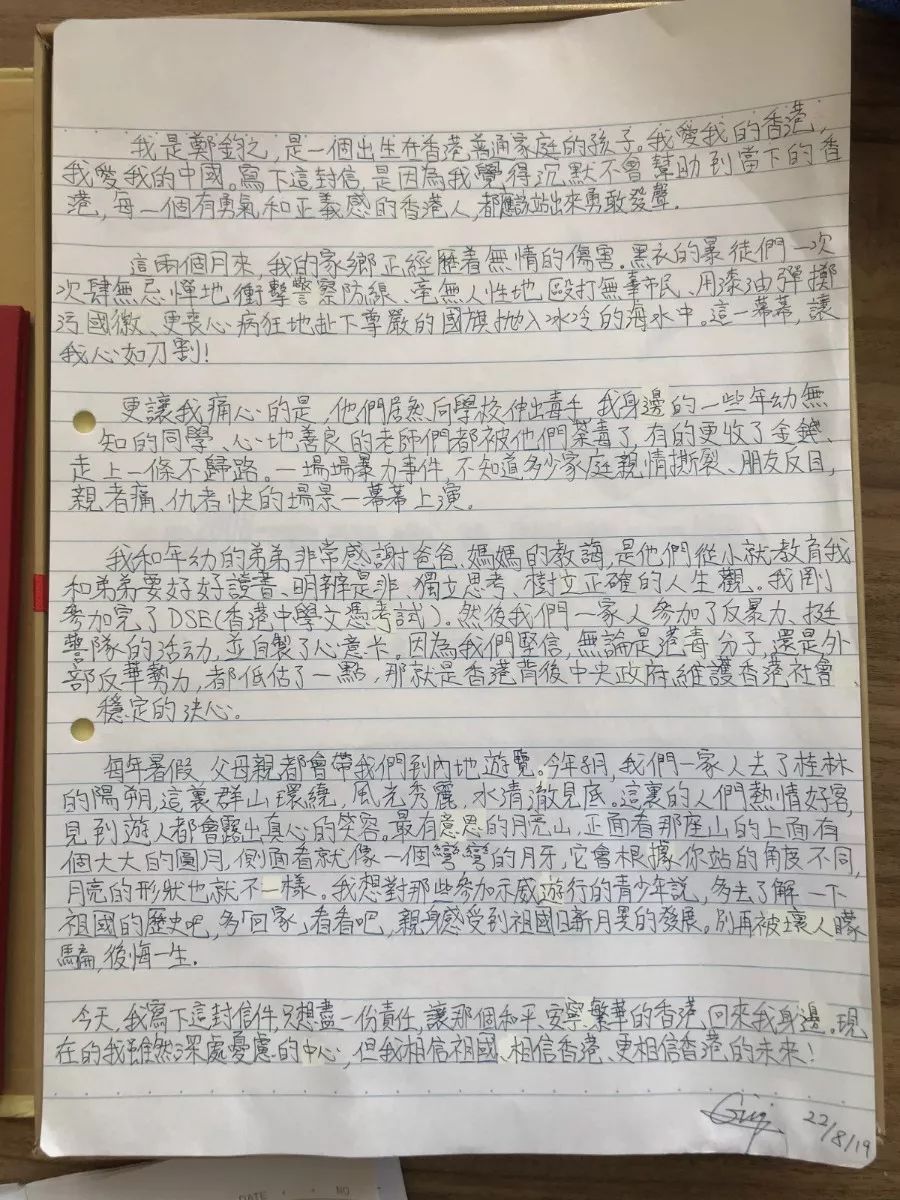 我是鄭鈞之,是一個出生在香港普通家庭的孩子。我愛我的香港,
我愛我的中國。寫下這封信,是因為我覺得沉默不會幫助到當下的香
港,每一個有勇氣和正義感的香港人,都應該站出來勇敢發聲.
這兩個月來,我的家鄉正經歷着無情的傷害。黑衣的暴徒們一次
次肆無忌憚地衝擊警察防線、毫無人性地毆打無辜市民、用漆油彈擲
污國徽、更喪心病狂地扯下尊嚴的國旗拋入冰冷的海水中。這一幕幕,讓
我心如刀割!
更讓我痛心的是,他們居然向學校伸出毒手,我身邊的一些年幼無
知的同學、心地善良的老師們都被他們荼毒了,有的更收了金錢、
走上一條不歸路。一場場暴力事件,不知道多少家庭親情撕裂、朋友反目,
親者痛、仇者快的場景一幕幕上演。
我和年幼的弟弟非常感謝爸爸、媽媽的教誨,是他們從小就教育我
和弟弟要好好讀書、明辨是非、獨立思考、樹立正確的人生觀。我剛
參加完了DSE(香港中學文憑考試)。然後我們一家人參加了反暴力、挺
警隊的活動,並自製了心意卡。因為我們堅信,無論是港毒分子,還是外
部反華勢力,都低估了一點,那就是香港背後中央政府維護香港社會
穩定的決心。
每年暑假,父母親都會帶我們到內地遊覽。今年8月,我們一家人去了桂林
的陽朔,這裏群山環繞,風光秀麗,水清澈見底。這裏的人們熱情好客,
見到遊人都會露出真心的笑容。最有意思的月亮山,正面看那座山的上面有
個大大的圓月,側面看就像一個彎彎的月牙,它會根據你站的角度不同,
月亮的形狀也就不一樣。我想對那些參加示威遊行的青少年説,多去了解一下
祖國的歷史吧,多「回家」看看吧,親身感受到祖國日新月異的發展。別再被壞人矇
騙,後悔一生.
今天,我寫下這封信件,只想盡一份責任,讓那個和平、安寧、繁華的香港、回來我身邊。現
在的我雖然深處憂慮的中心,但我相信祖國、相信香港、更相信香港的未來!
22/8/19
DATE NO